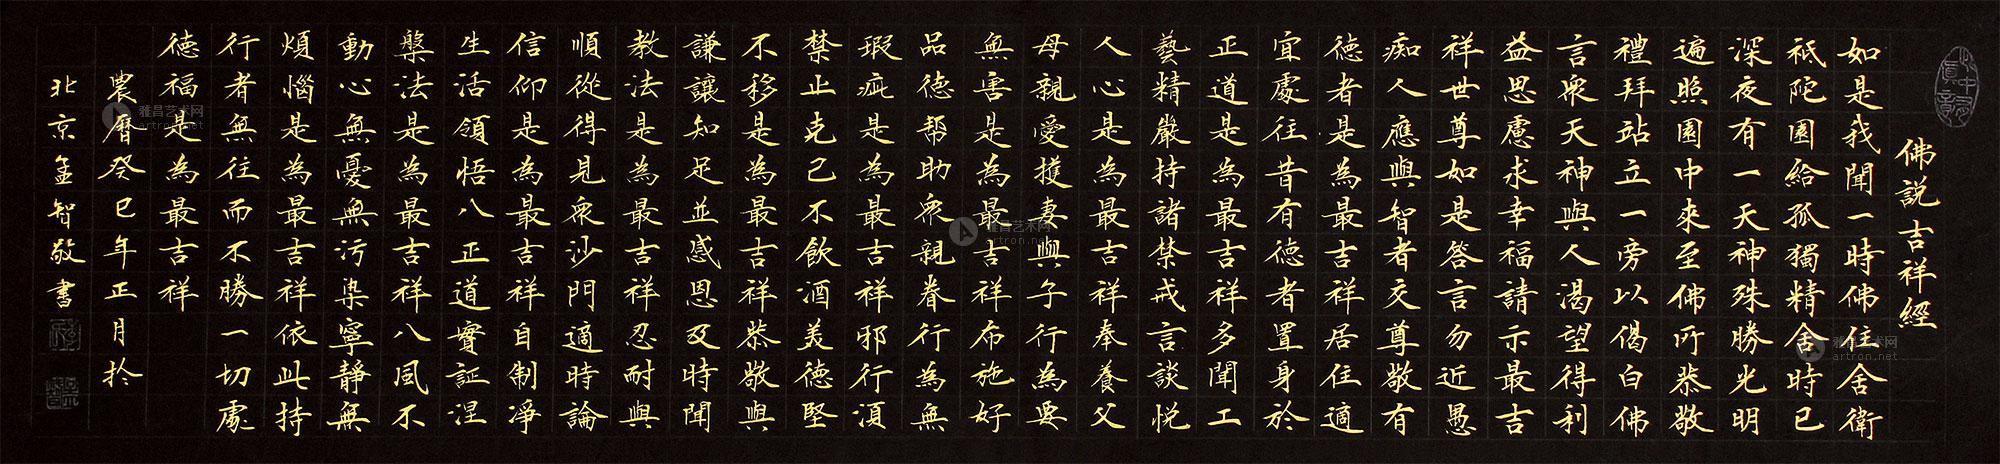 佛説吉祥經
如是我聞一時佛住舍衛
祗陀園給孤獨精舍時已
深夜有一天神殊勝光明
遍照園中來至佛所恭敬
禮拜站立一旁以偈白佛
言衆天神與人渴望得利
益思慮求幸福請示最吉
祥世尊如是答言勿近愚
痴人應與智者交尊敬有
德者是為最吉祥居住適
宜處往昔有德者置身於
正道是為最吉祥多聞工
藝精嚴持諸禁戒言談悦
人心是為最吉祥奉養父
母親愛獲妻與子行為要
無害是為最吉祥布施好
品德幫助衆親眷行為無
瑕疵是為最吉祥邪行須
禁止克己不飲酒美德堅
不移是為最吉祥恭敬與
謙讓知足並感恩及時聞
教法是為最吉祥忍耐與
順從得見衆沙門適時論
信仰是為最吉祥自制凈
生活領悟八正道實証涅
槃法是為最吉祥八風不
動心無憂無污染寧靜無
煩惱是為最吉祥依此持
行者無往而不勝一切處
德福是為最吉祥
農曆癸巳年正月於
北京孟智敬書
雅昌艺术网
artron.net
雅昌艺术网
artron.net
雅昌艺术网
artron.net